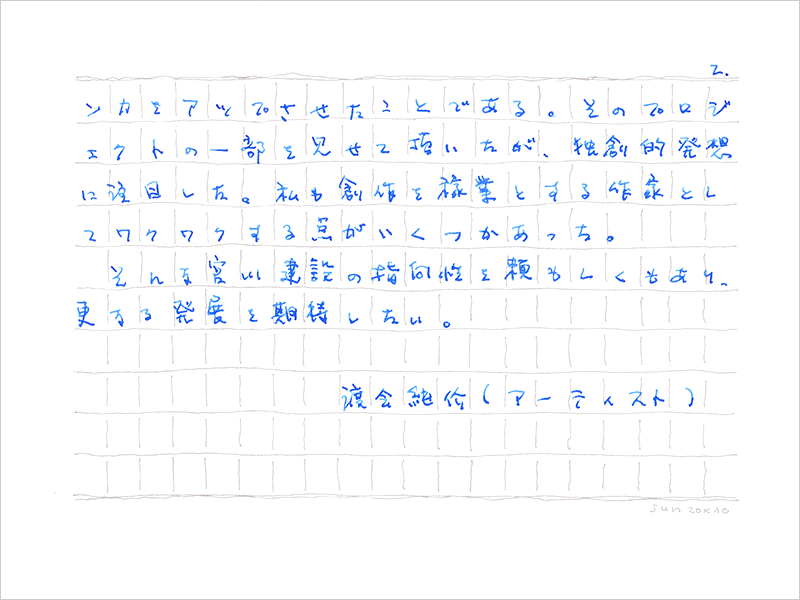 2.
ンカをアップさせたことである。そのプロジ
ェクトの一部を見せて頂いたが、独創的発想
に注目した。私も創作を稼業とする作家とし
てワクワクする点がいくつかあった。
そんな宮川建設の指向性を頼もしくもあり、
更なる発展を期待したい。
渡会純价(アーティスト)
sun 20×10